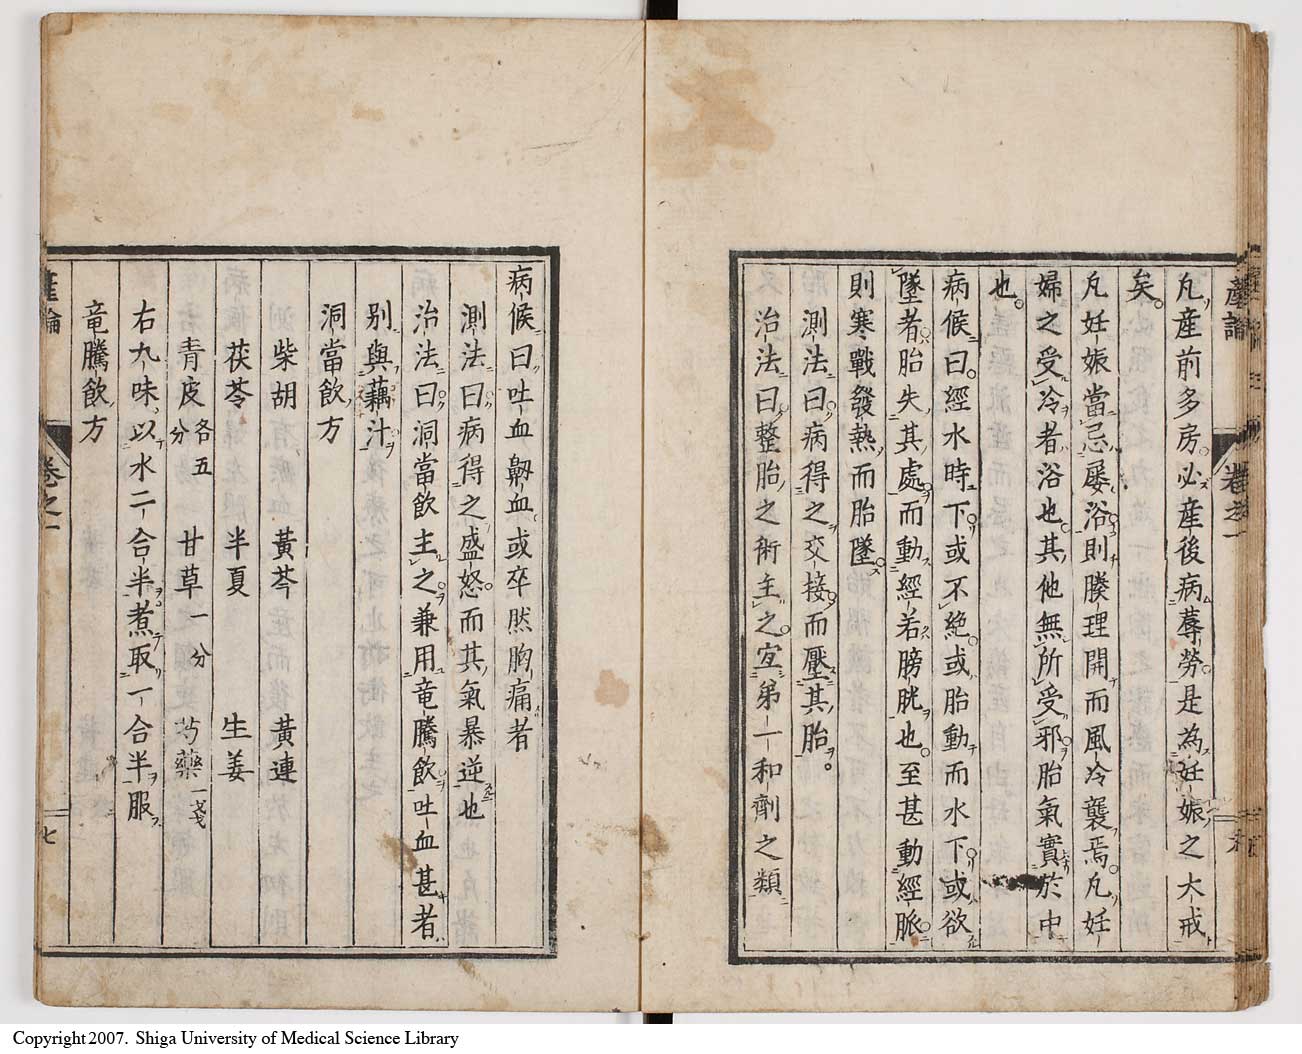 産論
卷之一
凡産前多房必産後病蓐勞是為妊娠之大戒
矣
凡妊娠當忌屡浴則腠理開而風冷襲焉凡妊
婦之受冷者浴也其他無所受邪胎氣實於中
也
病候曰經水時下或不絶或胎動而水下或欲
墜者胎失其處而動經若膀胱也至甚動經脈
則寒戰發熱而胎墜
測法曰病得之交接而壓其胎
治法曰整胎之術主之宜弟一和劑之類
病候曰吐血衂血或卒然胸痛者
測法曰病得之盛怒而其氣暴逆也
治法曰洞當飲主之兼用竜騰飲吐血甚者
別與藕汁
洞當飲方
柴胡 黃芩 黃連
茯苓 半夏 生姜
青皮各五分 甘草一分 芍藥一戔
右九味以水二合半煮取一合半服
竜騰飲方
産論
卷之一
七
Copyright 2007. Shiga University of Medical Science Library